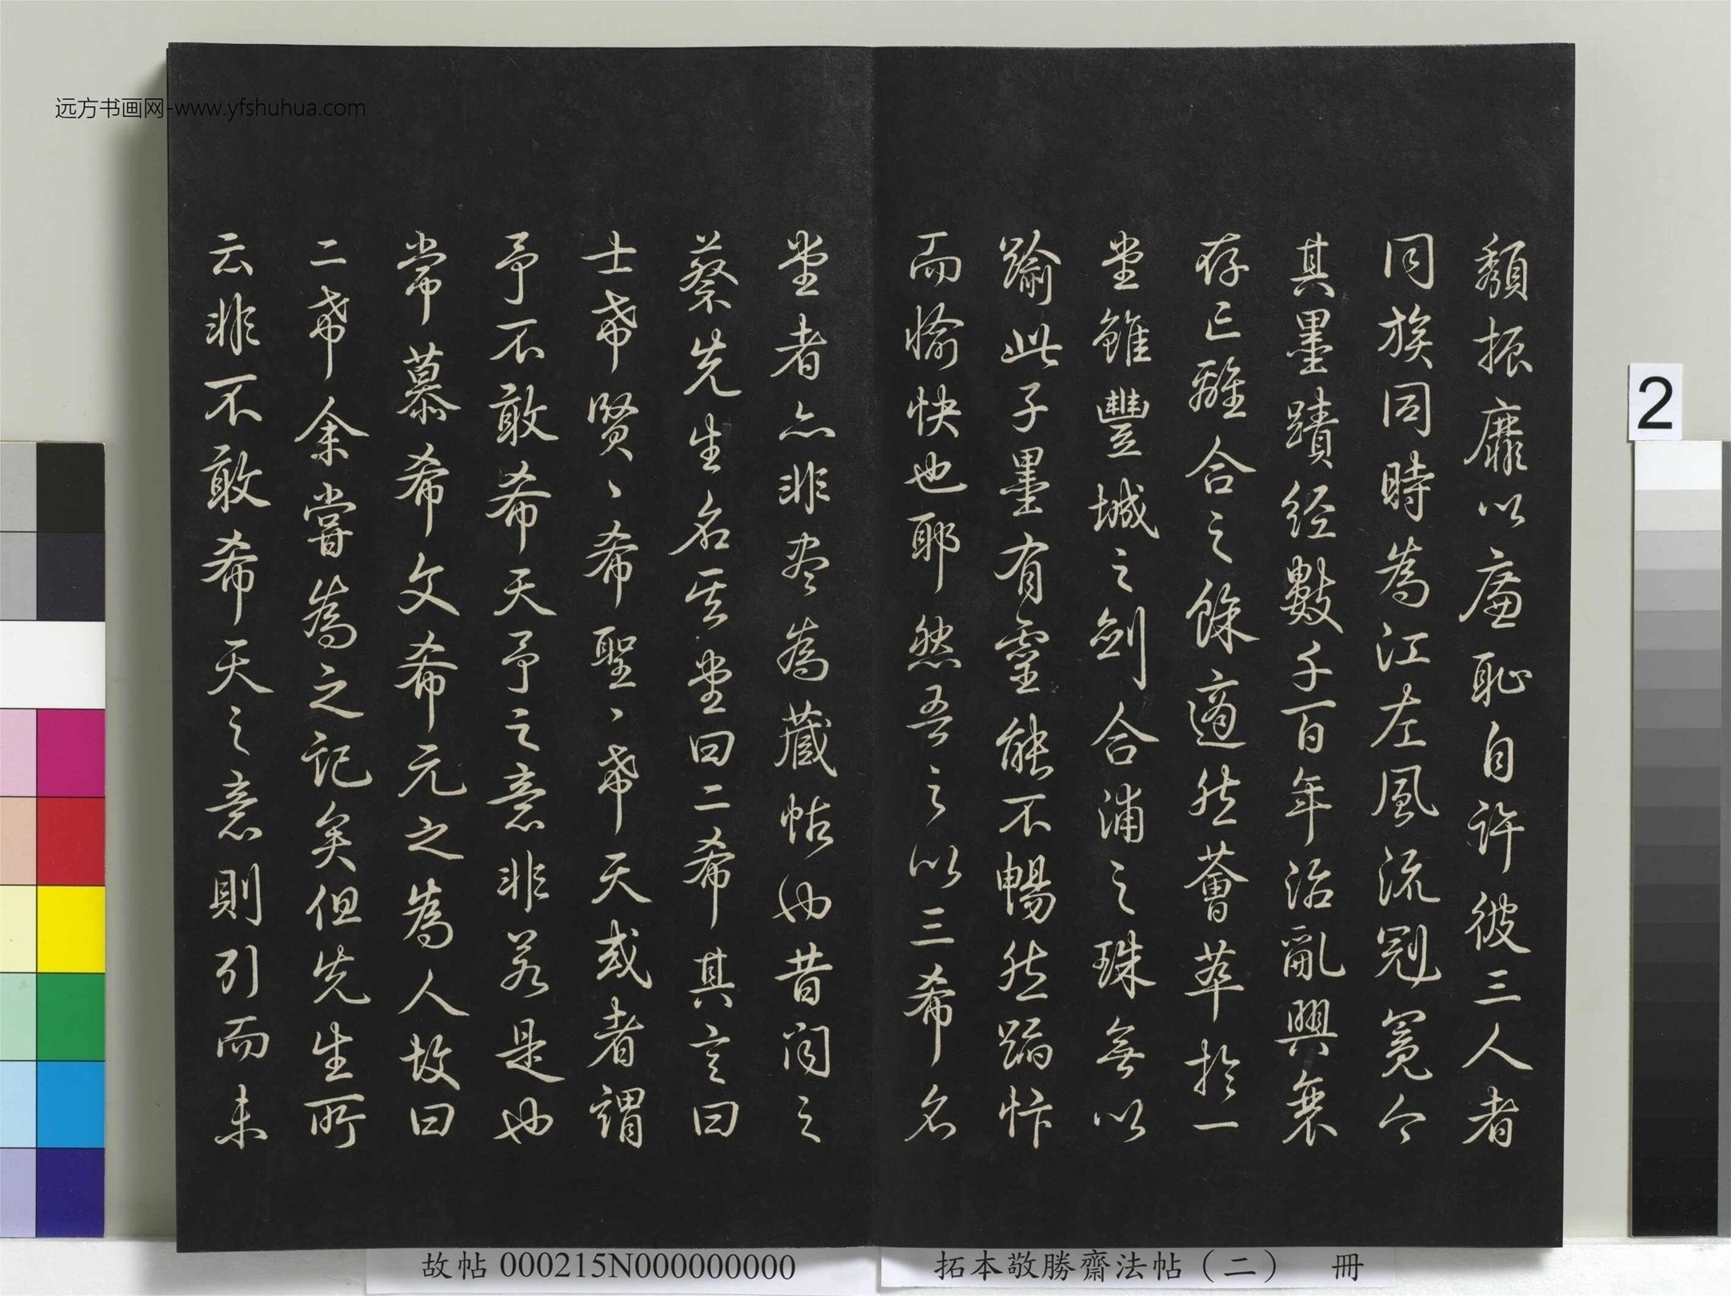 頹振靡以廉恥自許彼三人者
同族同時為江左風流冠冕今
其墨蹟經數千百年治亂興衰
存亡離合之餘適然薈萃於一
堂雖豐城之劍合浦之珠無以
踰此子墨有靈能不暢然蹈忭
而愉快也耶然吾之以三希名
堂者亦非盡為藏帖也昔聞之
蔡先生名其堂曰二希其言曰
士希賢〻希聖〻希天或者謂
予不敢希天予之意非若是也
常慕希文希元之為人故曰
二希余嘗為之記矣但先生所
云非不敢希天之意則引而未
远方书画网-www.yfshuhua.com
2
故帖 000215N000000000
拓本敬勝齋法帖（二） 冊